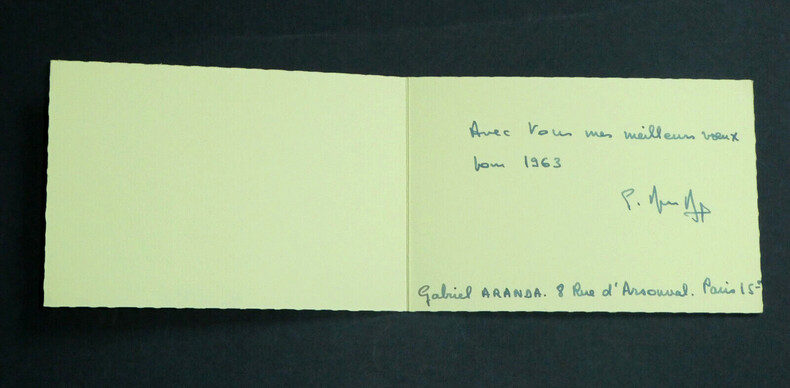 Avec Vous mes meilleurs vœux
pour 1963
Gabriel ARANDA. 8 Rue d'Arsonval. Paris 15